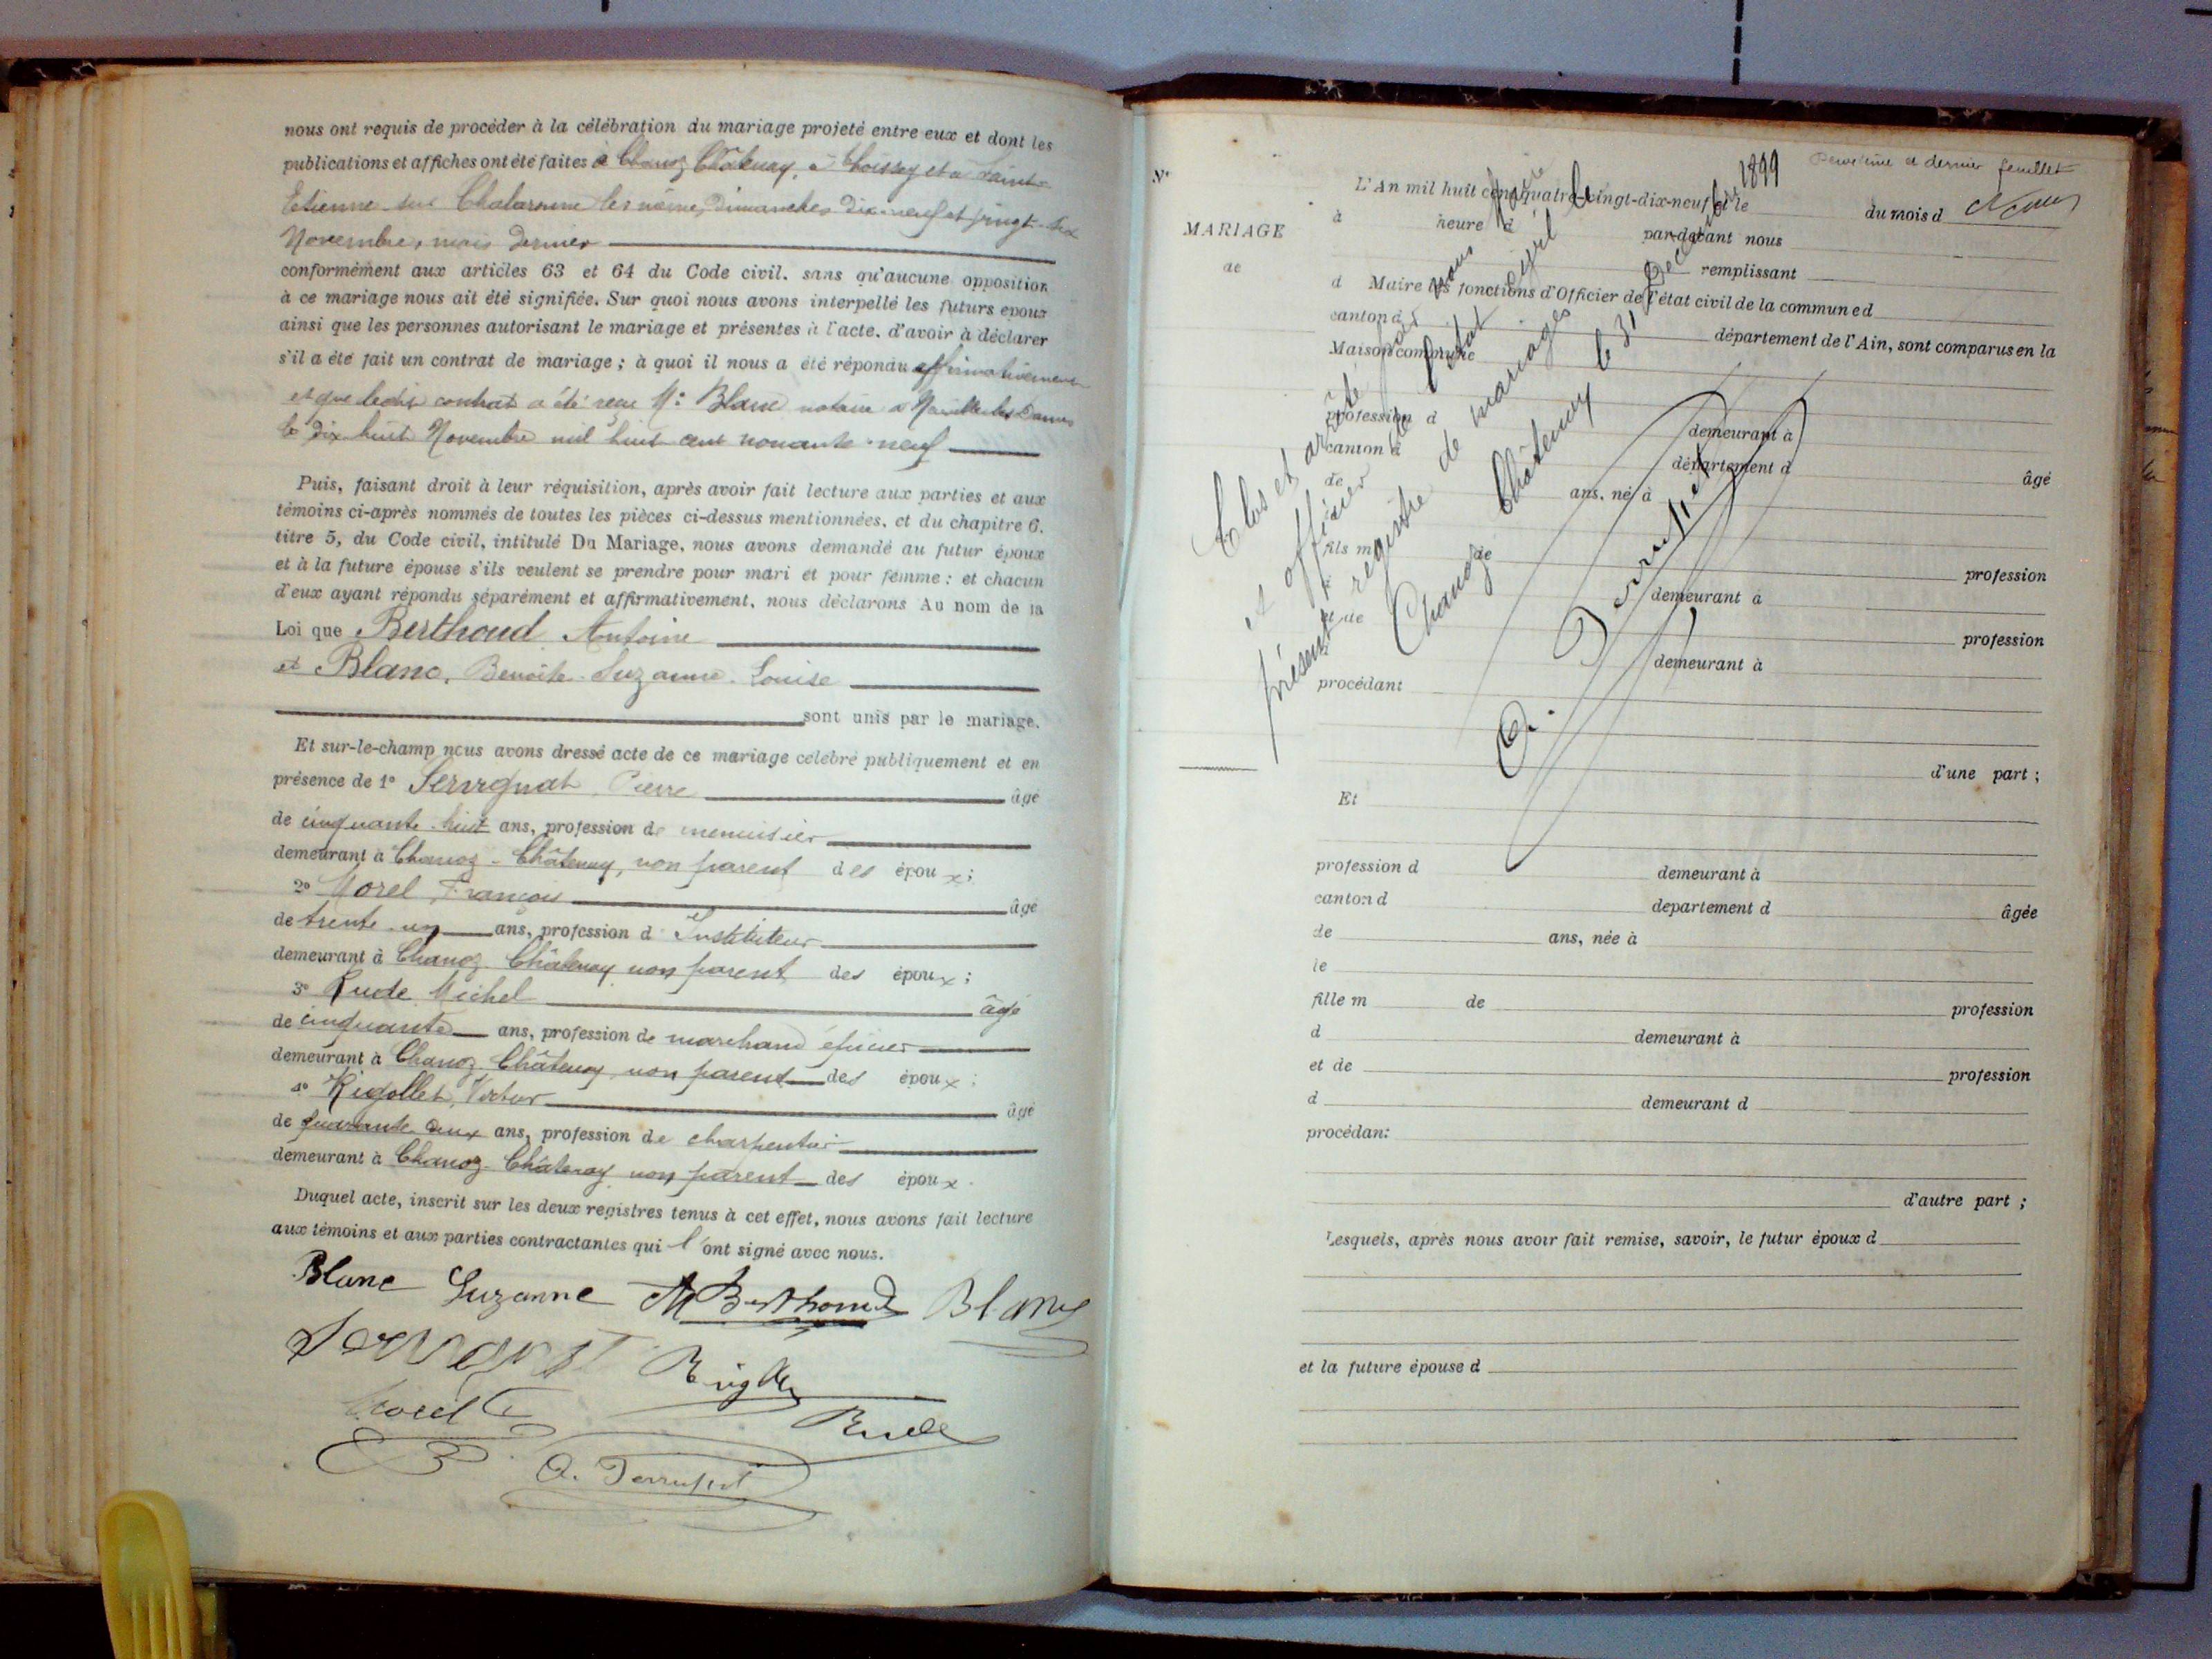 nous ont requis de procéder à la célébration du mariage projeté entre eux et dont les
publications et affiches ont été faites à Chanoz Châtenay, à Thoissey et à Saint-
Etienne sur Chalaronne les même, Dimanches dix-neuf et vingt-six
Novembre, mois dernier
conformément aux articles 63 et 64 du Code civil. sans qu'aucune opposition
à ce mariage nous ait été signifiée. Sur quoi nous avons interpellé les futurs epoux
ainsi que les personnes autorisant le mariage et présentes à l'acte. d'avoir à déclarer
s'il a été fait un contrat de mariage ; à quoi il nous a été répondu affirmativement
et que ledit contrat a été reçu Me Blanc notaire à Neuville les Dames
le dix huit Novembre mil huit cent nonante-neuf
Puis, faisant droit à leur réquisition, après avoir fait lecture aux parties et aux
témoins ci-après nommés de toutes les pièces ci-dessus mentionnées. et du chapitre 6.
titre 5, du Code civil, intitulé Du Mariage, nous avons demandé au futur époux
et à la future épouse s'ils veulent se prendre pour mari et pour femme : et chacun
d'eux ayant répondu séparément et affirmativement, nous déclarons Au nom de la
Loi que Berthoud Antoine
et Blanc, Benoite Suzanne Louise
sont unis par le mariage.
Et sur-le-champ nous avons dressé acte de ce mariage célébré publiquement et en
présence de 1° Servignat Pierre âgé
de cinquante-huit ans, profession de menuisier
demeurant à Chanoz-Châtenay, non parent des époux ;
2° Morel, François âgé
de trente-un ans, profession d' Instituteur
demeurant à Chanoz Châtenay non parent des époux ;
3° Rude Michel âgé
de cinquante ans, profession de marchand épicier
demeurant à Chanoz Châtenay non parent des époux ;
4° Rigollet, Victor âgé
de quarante deux ans, profession de charpentier
demeurant à Chanoz-Châtenay non parent des époux.
Duquel acte, inscrit sur les deux registres tenus à cet effet, nous avons fait lecture
aux témoins et aux parties contractantes qui l'ont signé avec nous.
Blanc Suzanne Berthoud Blanc
Servignat
Morel Rude
N°
MARIAGE
de
dernier feuillet
L'An mil huit cent quatre-vingt-dix-neuf et le du mois d
à heure d par-devant nous
d Maire remplissant
les fonctions d'Officier de l'état civil de la commune d
canton d département de l'Ain, sont comparus en la
Maison commune
profession d demeurant à
canton d département d âgé
de ans, né à
fils m de profession
demeurant à
et de profession
demeurant à
procédant
d'une part ;
Clos et arrêté par nous Maire
et officier de l'état civil le
présent registre de mariages
Chanoz Châtenay le 31 Décembre 1899
Et
profession d demeurant à
canton d departement d âgée
de ans, née à
le
fille m de profession
d demeurant à
et de profession
d demeurant d
procédant
d'autre part ;
Lesquels, après nous avoir fait remise, savoir, le futur époux d
et la future épouse d